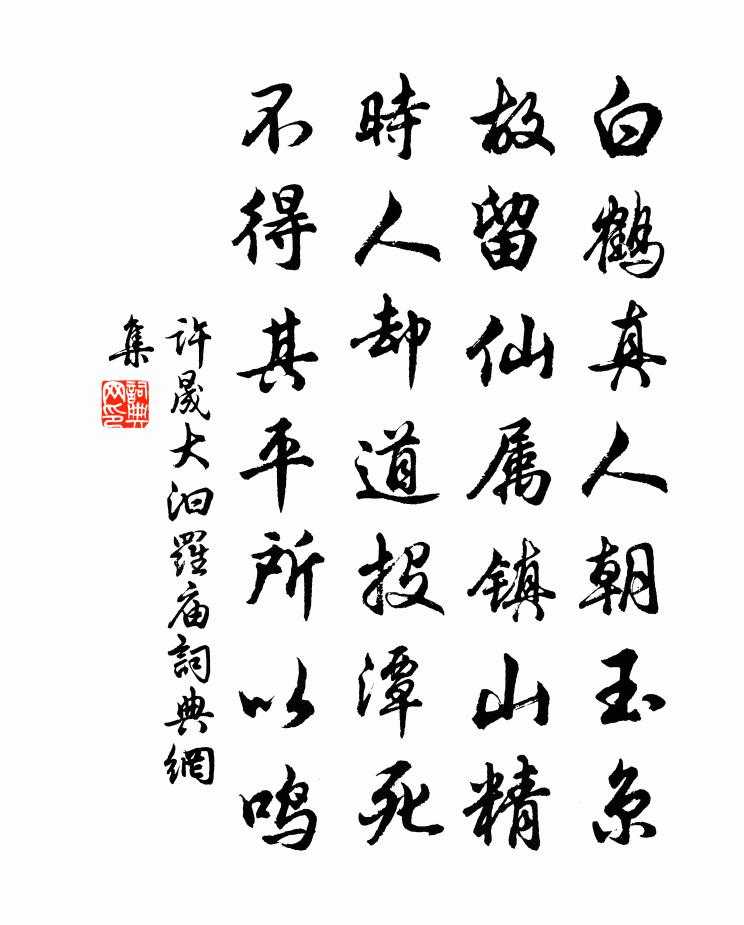 白鶴真人朝玉京
故留仙属镇山精
時人却道投潭死
不得其平所以鸣
許晟大汨羅庙詞典網
集
詞典网印